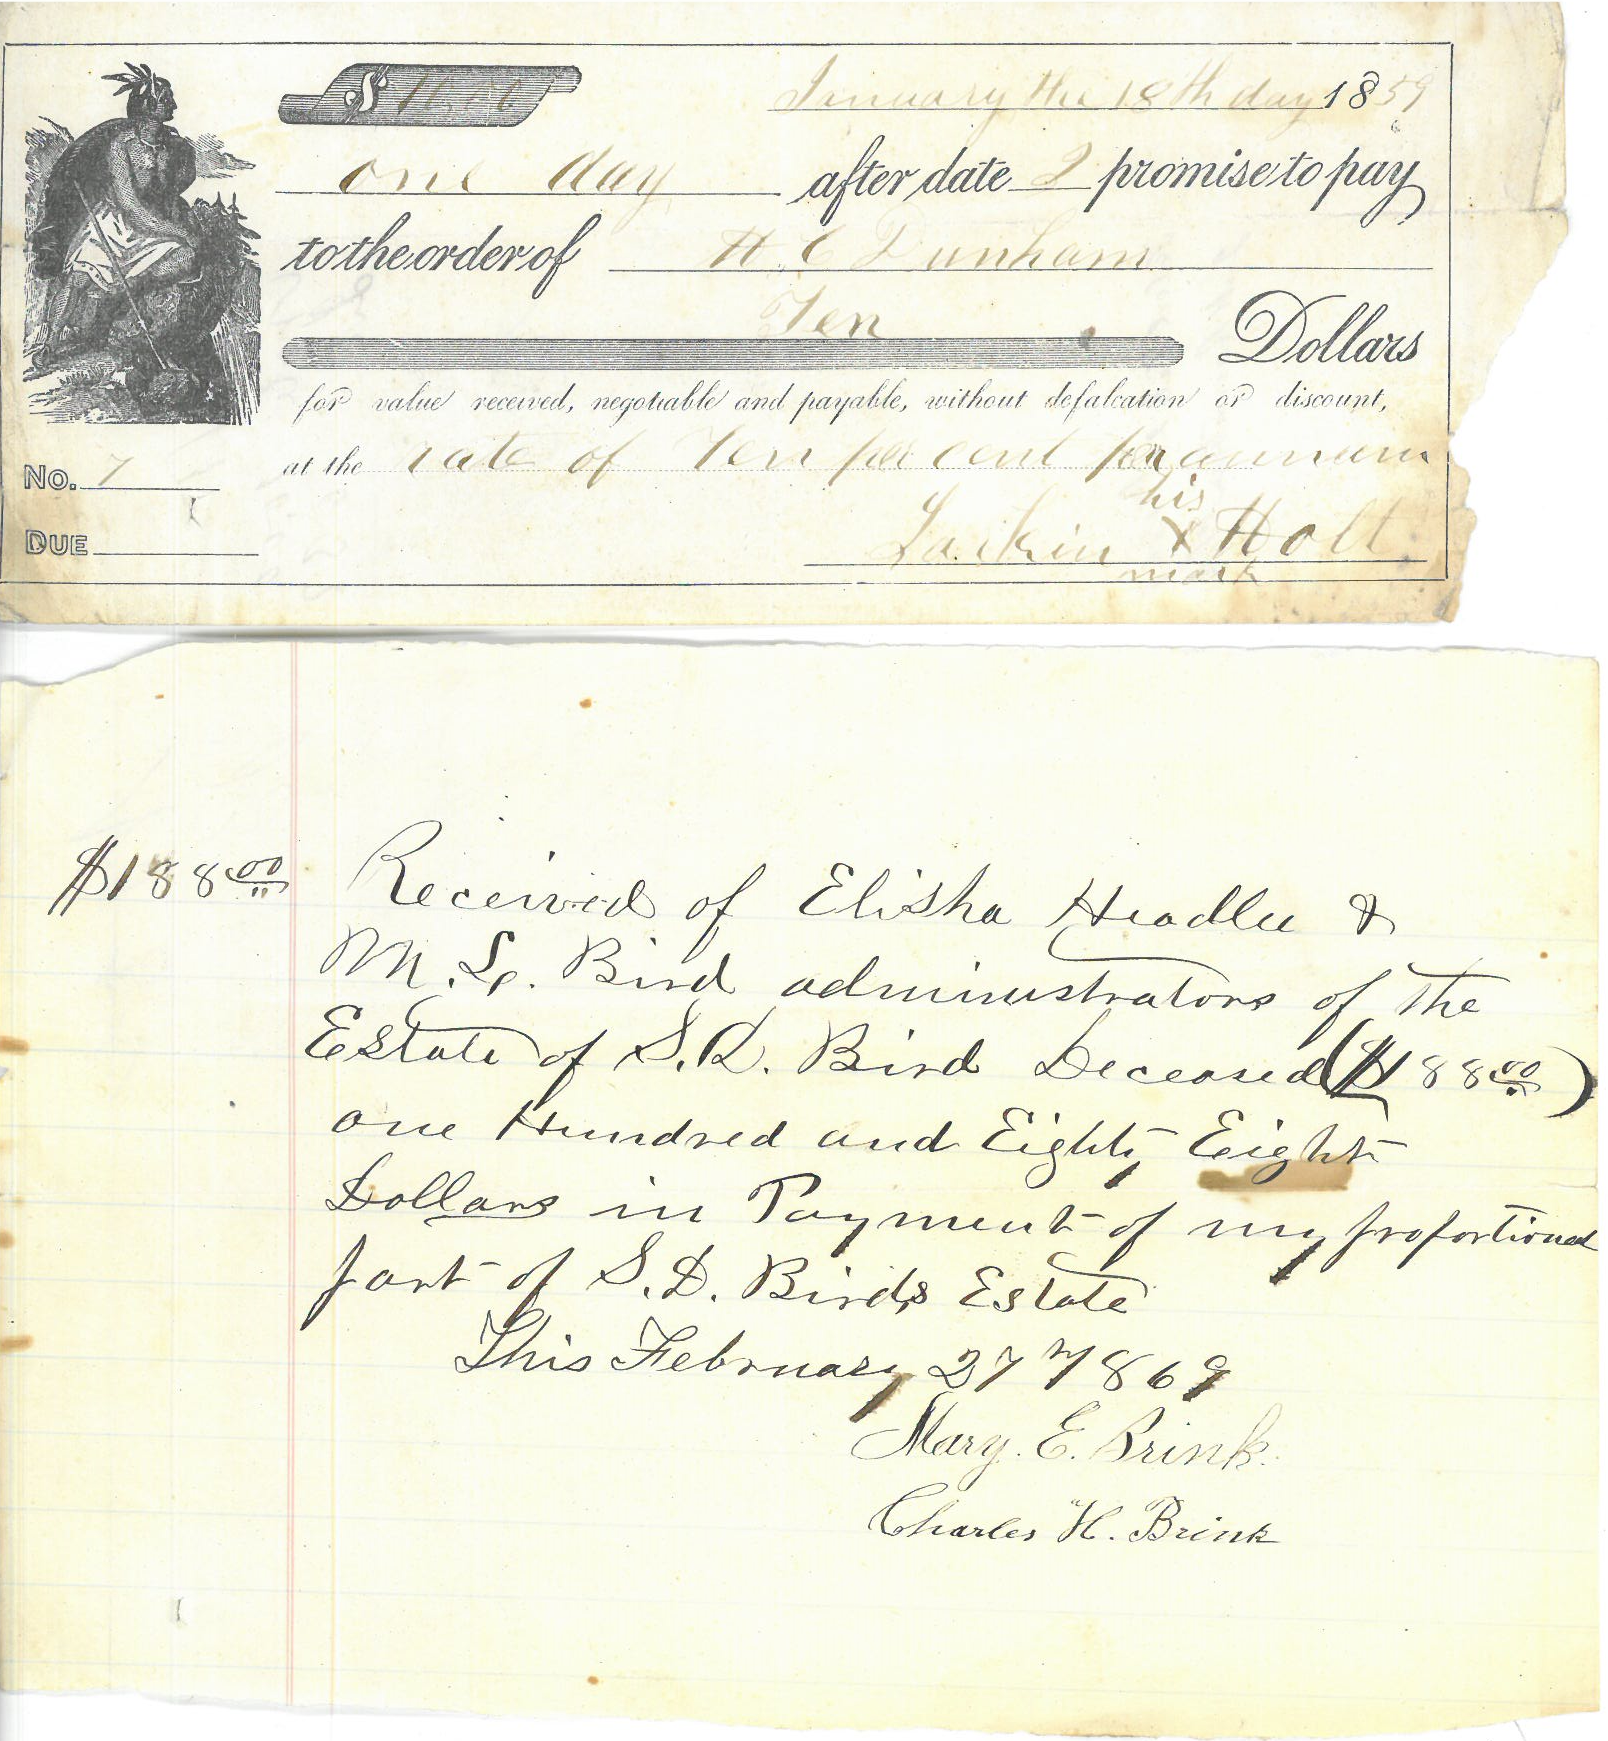 $ 10.00
January the 18th day 1859
one day after date I promise to pay
to the order of H. C Dunham
Ten Dollars
for value received, negotiable and payable, without defalcation or discount,
at the rate of Ten per cent per annum
No. 7
his
Larkin X Holt
mark
DUE
$188 00 Received of Elisha Headlee &
M. L. Bird administrators of the
Estate of S. D. Bird Deceased ($188 00)
one Hundred and Eighty Eight
Dollars in Payment of my proportional
part of S. D. Birds Estate
This February 27th 1869
Mary. E. Brink.
Charles H. Brink